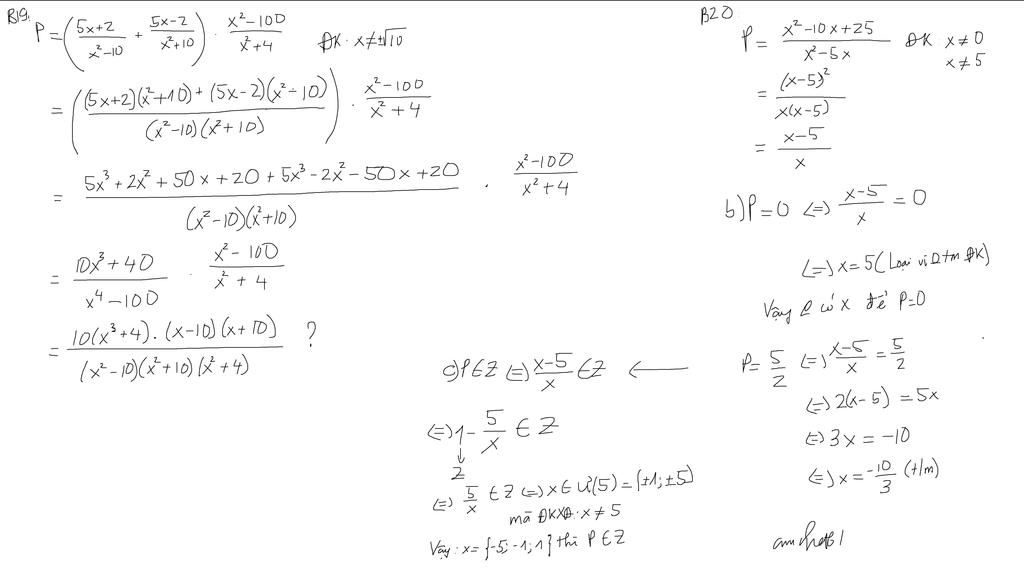 B19.
P = ((5x+2)/(x²-10) + (5x-2)/(x²+10)) · (x²-100)/(x²+4) ĐK: x ≠ ±√10
= (((5x+2)(x²+10) + (5x-2)(x²-10))/((x²-10)(x²+10))) · (x²-100)/(x²+4)
= (5x³+2x²+50x+20+5x³-2x²-50x+20)/((x²-10)(x²+10)) · (x²-100)/(x²+4)
= (10x³+40)/(x⁴-100) · (x²-100)/(x²+4)
= (10(x³+4)·(x-10)(x+10))/((x²-10)(x²+10)(x²+4)) ?
B20
P = (x²-10x+25)/(x²-5x) ĐK x ≠ 0
x ≠ 5
= (x-5)²/(x(x-5))
= (x-5)/x
b) P = 0 <=> (x-5)/x = 0
<=> x = 5 (Loại vì 0 t/m ĐK)
Vậy có x để P=0
P = 5/2 <=> (x-5)/x = 5/2
<=> 2(x-5) = 5x
<=> 3x = -10
<=> x = -10/3 (t/m)
c) P ∈ Z <=> (x-5)/x ∈ Z ←
<=> 1 - 5/x ∈ Z
↓
Z
<=> 5/x ∈ Z <=> x ∈ Ư(5) = {±1; ±5}
mà ĐKXĐ: x ≠ 5
Vậy: x = {-5; -1; 1} thì P ∈ Z